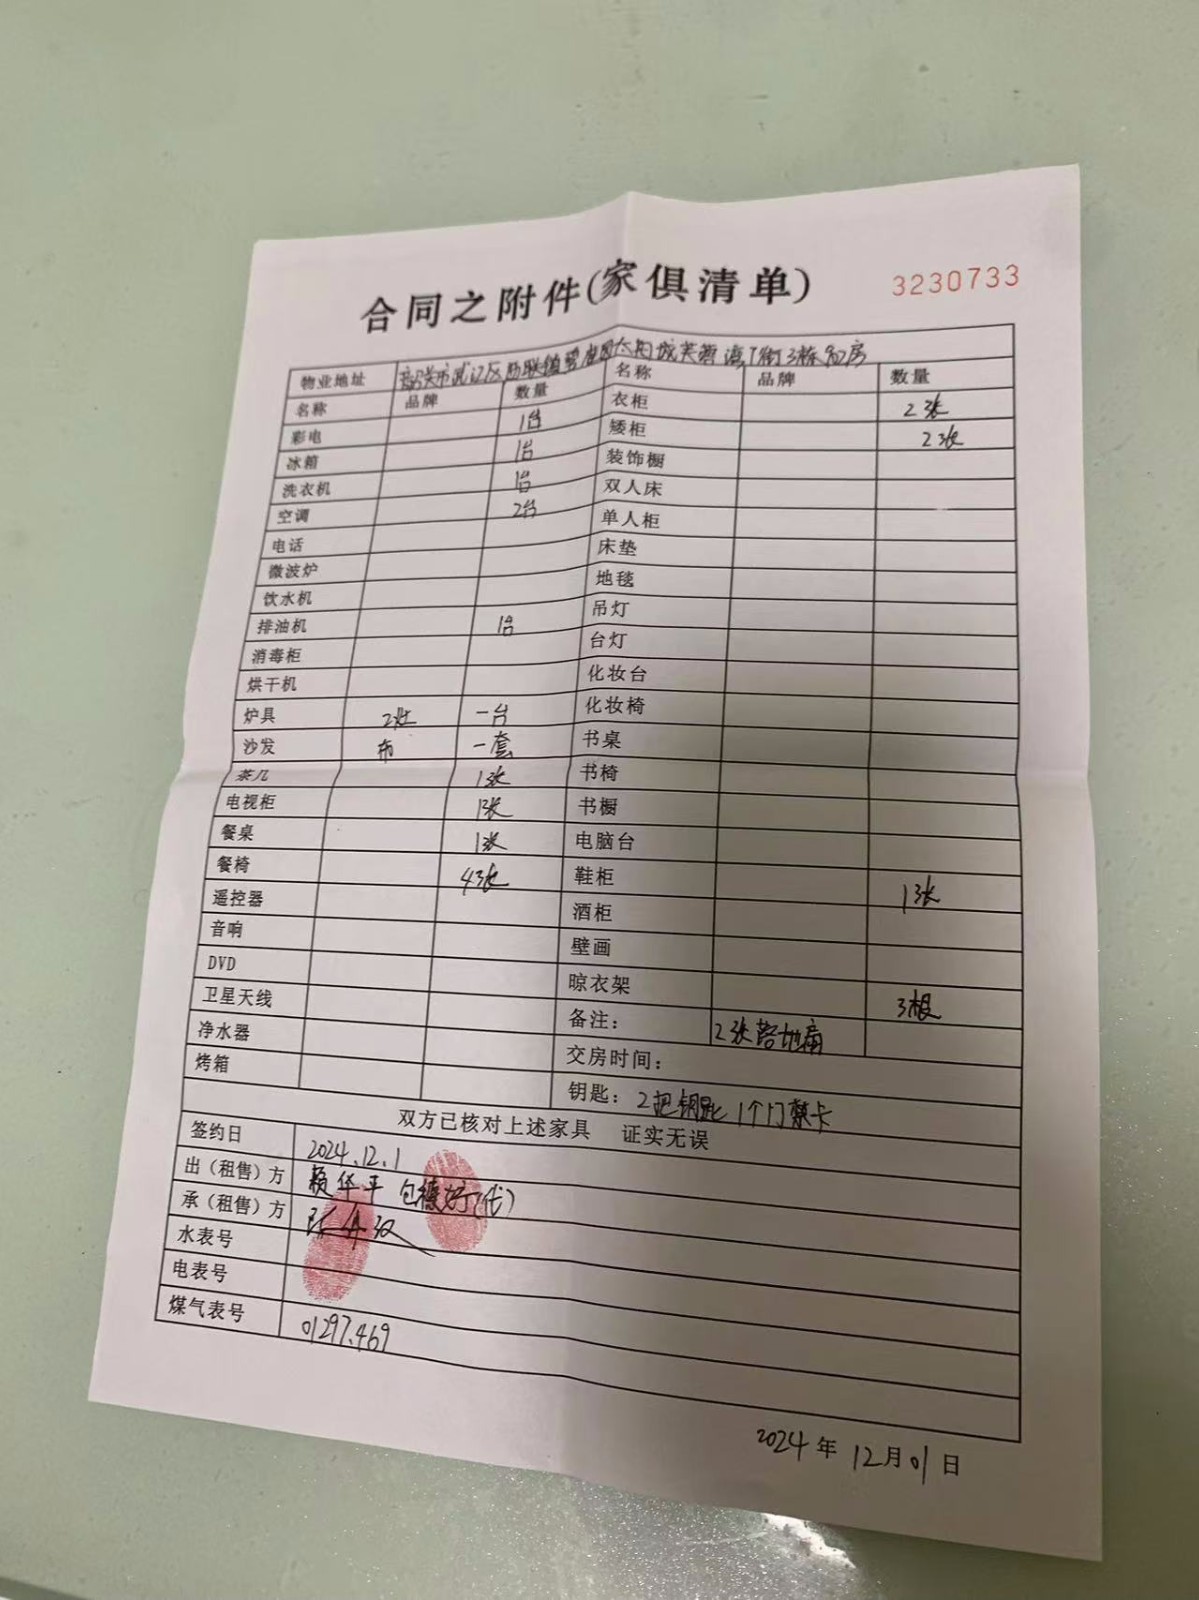 合同之附件(家俱清单)
3230733
物业地址 韶关市武江区西联镇碧桂园太阳城芙蓉湾1街3栋
名称 品牌 数量 名称 品牌 数量
彩电 1台 衣柜 2张
冰箱 1台 矮柜 2张
洗衣机 1台 装饰橱
空调 2台 双人床
电话 单人柜
微波炉 床垫
饮水机 地毯
排油机 1台 吊灯
消毒柜 台灯
烘干机 化妆台
炉具 2灶 一台 化妆椅
沙发 布 一套 书桌
茶几 1张 书椅
电视柜 1张 书橱
餐桌 1张 电脑台
餐椅 4张 鞋柜 1张
遥控器 酒柜
音响 壁画
DVD 晾衣架 3根
卫星天线 备注: 2张
净水器 交房时间:
烤箱 钥匙: 2把钥匙 1个门禁卡
双方已核对上述家具 证实无误
签约日 2024.12.1
出(租售)方 赖华平 (代)
承(租售)方
水表号
电表号
煤气表号 01297.469
2024年12月01日